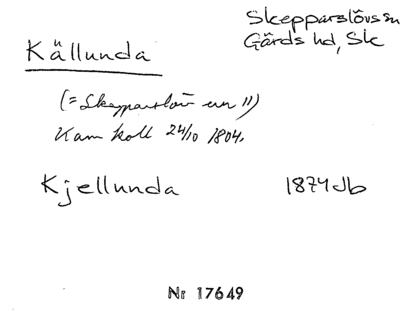 Skepparslövs sn
Gärds hd, Sk
Källunda
(= Skepparslöv nr 11)
Kam koll 24/10 1804.
Kjellunda 1874 Jb
Nr 17649